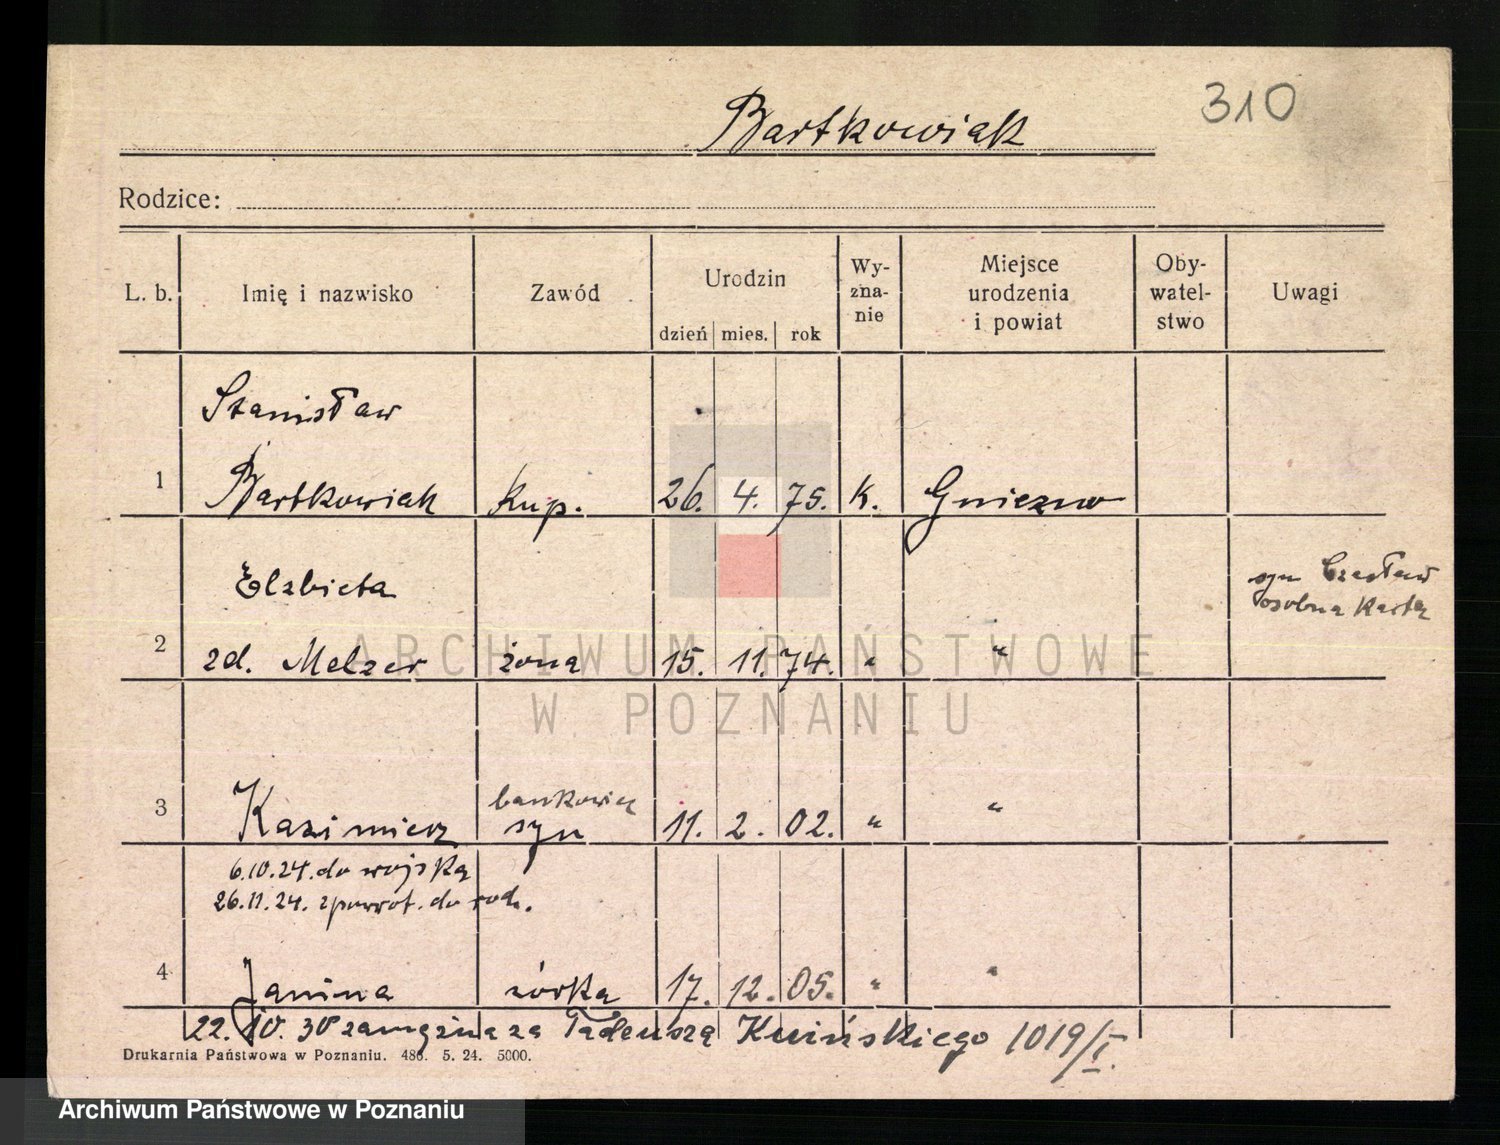 310
Bartkowiak
Rodzice:
L. b. Imię i nazwisko Zawód Urodzin dzień mies. rok Wy-zna-nie Miejsce urodzenia i powiat Oby-watel-stwo Uwagi
Stanisław
1 Bartkowiak Kup. 26. 4. 75. K. Gniezno
Elzbieta
syn Czesław
osobna Karta
2 zd. Melzer żona 15. 11. 74. " "
bankowiec
3 Kazimierz syn 11. 2. 02. " "
6.10.24. do wojska
26.11.24. zpowrot. do rodz.
4 Janina córka 17. 12. 05. " "
22.10.30 zamężna za Tadeusza 1019/I.
Drukarnia Państwowa w Poznaniu. 486. 5. 24. 5000.
ARCHIWUM PAŃSTWOWE
W POZNANIU
Archiwum Państwowe w Poznaniu